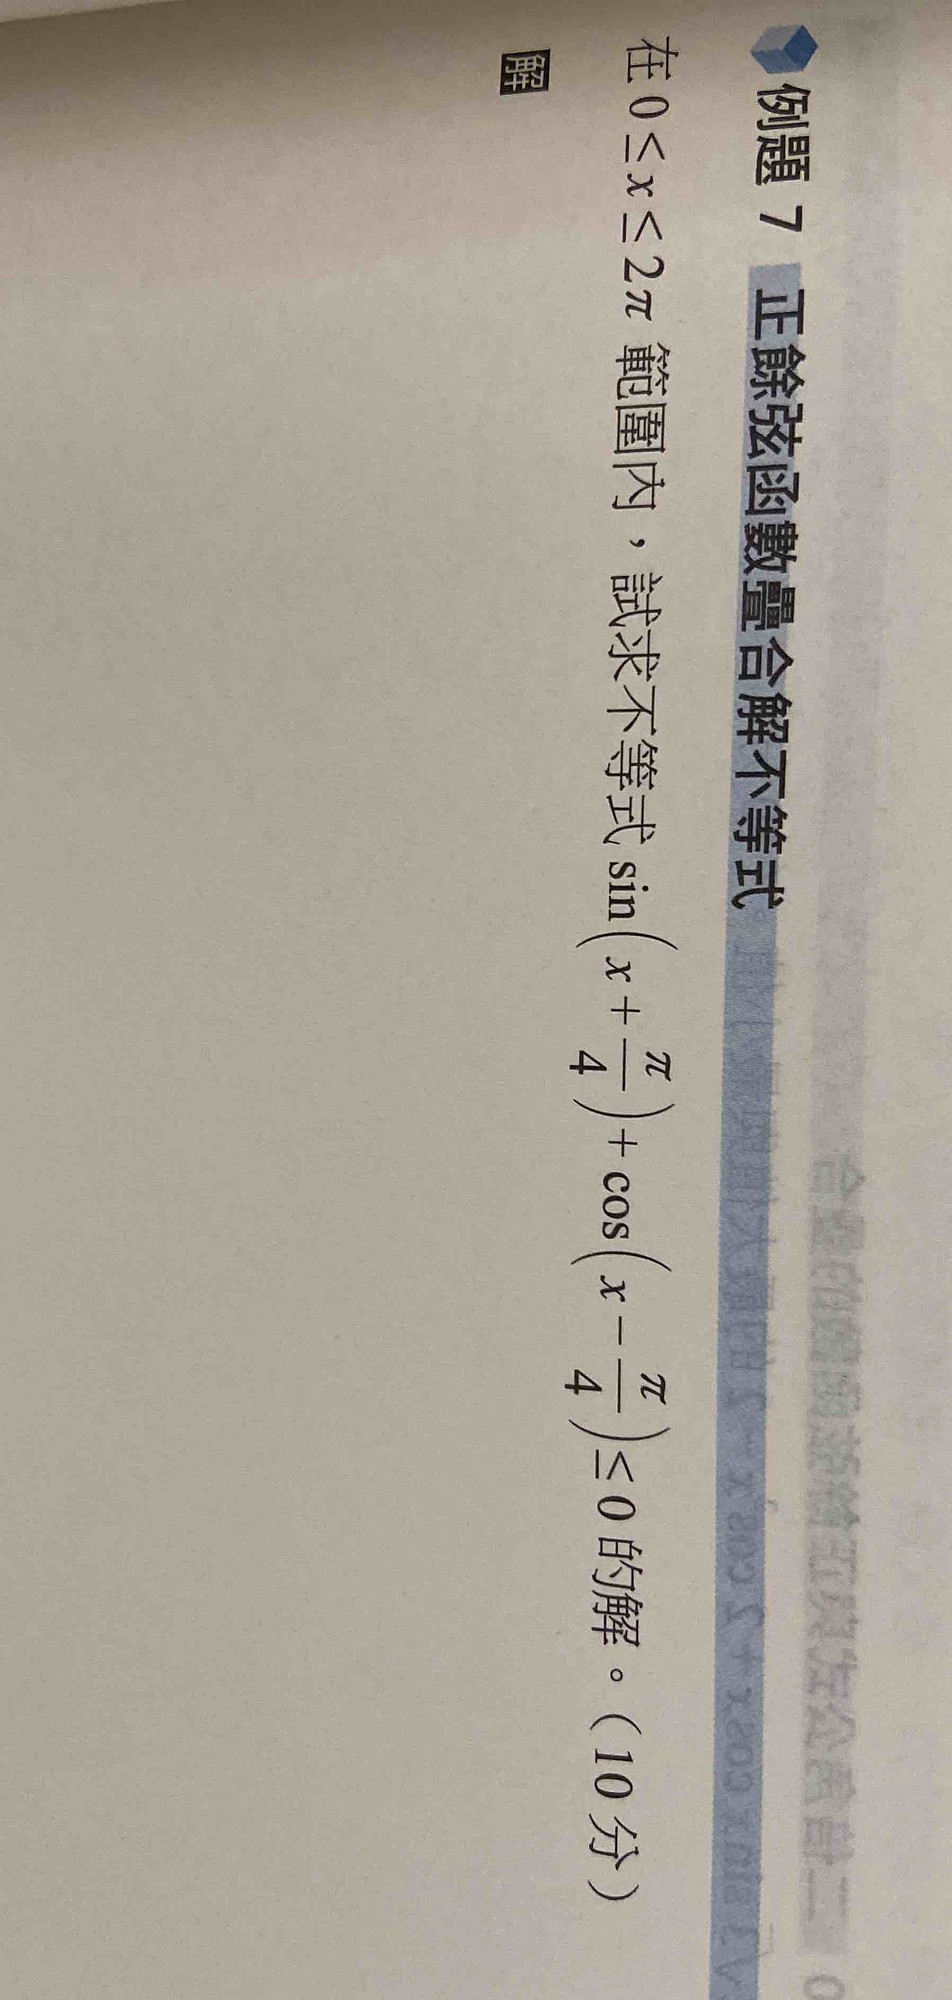 例題 7 正餘弦函數疊合解不等式
在 0 ≤ x ≤ 2π 範圍內，試求不等式 sin(x + π/4) + cos(x − π/4) ≤ 0 的解。（10 分）
解